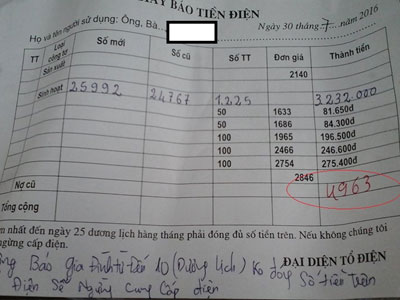 GIẤY BÁO TIỀN ĐIỆN
Họ và tên người sử dụng: Ông, Bà
Ngày 30 tháng 7 năm 2016
TT Loại công tơ Số mới Số cũ Số TT Đơn giá Thành tiền
Sản xuất 2140
Sinh hoạt 25992 24767 1.225 3.232.000
50 1633 81.650đ
50 1686 84.300đ
100 1965 196.500đ
100 2466 246.600đ
100 2754 275.400đ
2846 4963
Nợ cũ
Tổng cộng
nhất đến ngày 25 dương lịch hàng tháng phải đóng đủ số tiền trên. Nếu không chúng tôi
ngừng cấp điện.
ĐẠI DIỆN TỔ ĐIỆN
Báo gia Đình từ Đến 10 (Dương Lịch) Ko đóng Số Tiền Trên
Điện Sẽ Ngừng Cung Cấp điện